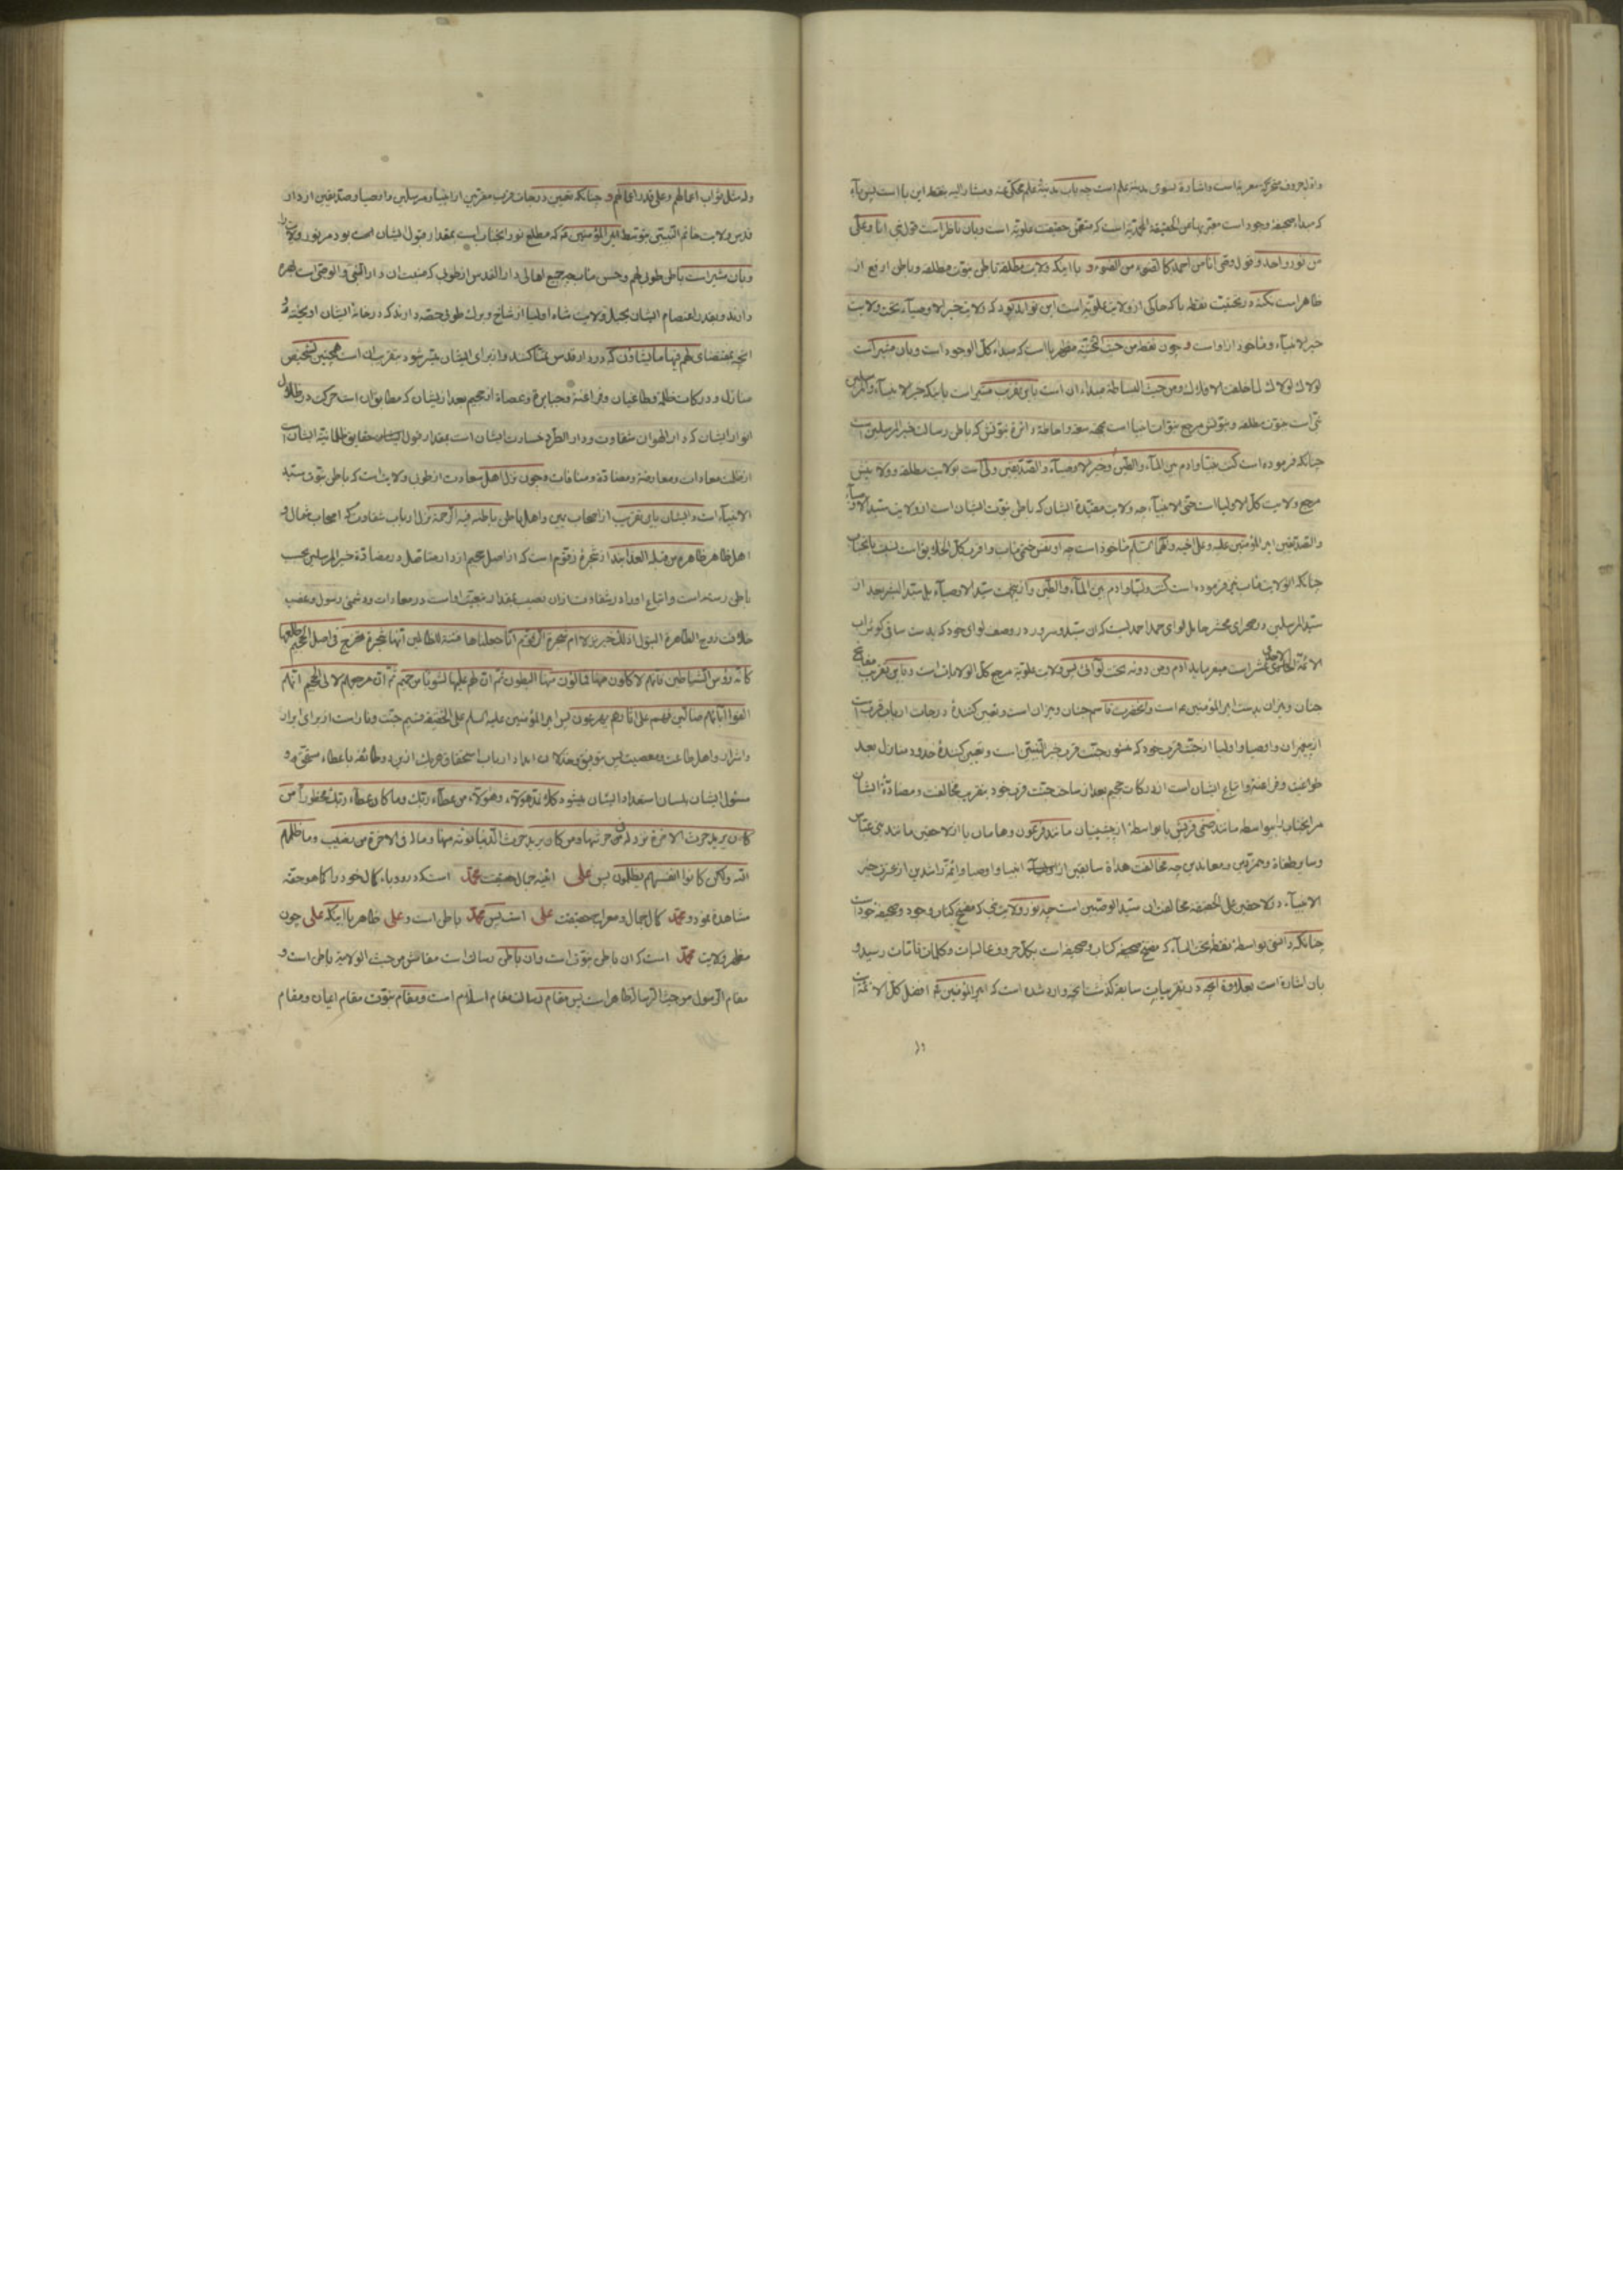 واو از حروف بحرکت معربه است و اشاره بسوی مدینه علم است چه باب مدینهٔ علم محکی عنه و مشار الیه بنقطه این با است پس باء
که مبداء صحیفهٔ وجود است معبر بها من الحقیقة المحمدیة است که متضمن حقیقت علویه است و بان ناظر است قول نبی انا و علی
من نور واحد و قول وصی انا من احمد کالضوء من الضوء و با اینکه ولایت مطلقه باطن نبوت مطلقه و باطن ارفع از
ظاهر است نکته در تحتیت نقطه با که حاکی از ولایت علویه است این تواند بود که ولایت خیر الاوصیاء تحت ولایت
خیر الانبیاء و ماخوذ از او است و چون نقطه من حیث التحتیه مظهر با است که مبداء کل الوجود است و بان مشیر است
لولاک لولاک لما خلقت الافلاک و من حیث البساطة مبداء ان است باین تقریب مشیر است باینکه خیر الانبیاء والمرسلین
نبی است بنبوت مطلقه و نبوتش مرجع نبوات انبیا است بجهت سعه و احاطهٔ دائرهٔ نبوتش که باطن رسالت خیر المرسلین است
چنانکه فرموده است کنت نبیا و ادم بین الماء والطین و خیر الاوصیاء والصدیقین ولی است بولایت مطلقه و ولایتش
مرجع ولایت کل الاولیا است حتی الانبیاء چه ولایت مقیدهٔ ایشان که باطن نبوت ایشان است از ولایت سید الاوصیاء
والصدیقین امیر المؤمنین علیه و علی اخیه و الهما السلام ماخوذ است چه او نفس ختمی ماب و اقرب کل الخلایق است نسبت بانجناب
چنانکه انولایت ماب نیز فرموده است کنت ولیا و ادم بین الماء والطین و از انجهت سید الاوصیاء بل سید البشر بعد از
سید المرسلین در صحرای محشر حامل لوای حمد احمدیست که ان سید و سرور در وصف لوای خود که بدست ساقی کوثر باب
الائمة الاحدی عشر است میفرماید ادم و من دونه تحت لوائی پس ولایت علویه مرجع کل الولایات است و باین تقریب مفاتیح
جنان و نیران بدست امیر المؤمنین ع است و انحضرت قاسم جنان و نیران است و تعیین کنندهٔ درجات ارباب قرب است
از پیغمبران و اوصیا و اولیا از جنت قرب خود که منور بجنت قرب خیر النبیین است و تعیین کنندهٔ حدود منازل بعد
طواغیت و فراعنه و اتباع ایشان است از درکات جحیم بعد از ساحت جنت قرب خود بتقریب مخالفت و مضادهٔ ایشان
مر انجناب را بیواسطه مانند صنمی قریش یا بواسطهٔ از پیشینیان مانند فرعون و هامان یا از لاحقین مانند بنی عباس
و سایر طغاة و متمردین و معاندین چه مخالفت هداة سابقین از انبیا و اوصیا و ائمه راشدین از عترت خیر
الانبیاء در لاحقین علی الحقیقه مخالفت این سید الوصیین است چه نور ولایت نبی که مفتح کتاب وجود و صحیفهٔ جود است
چنانکه دانستی بواسطهٔ نقطه تحت الباء که مفتح صحیفه کتاب و صحیفه است بکل حروف عالیات و کلمات تامات رسید و
بان اشاره است بعلاوه انچه در تقریبات سابقه گذشت انچه وارد شده است که امیر المؤمنین ع افضل کل الائمة است
وله
وله مثل ثواب اعمالهم و علی قدر اعمالهم و چنانکه تعیین درجات قرب مقربین از انبیا و مرسلین و اوصیا و صدیقین از دار
قدس ولایت خاتم النبیین بتوسط امیر المؤمنین ع که مطلع نور انجناب است بمقدار قبول ایشان است بود مر نور ولایت را
و بان مشیر است باطن طوبی لهم و حسن ماب چه جمیع اهالی دار القدس از طوبی که منبت ان دار النبی و الوصی است بهره
دارند و بقدر اعتصام ایشان بحبل ولایت شاه اولیا از شاخ و برگ طوبی حصه دارند که در خانهٔ ایشان اویخته و
انچه بمقتضای لهم فیها ما یشاؤن که در دار قدس تمنا کنند و از برای ایشان میسر شود بتقریب ان است همچنین تشخیص
منازل و درکات ظلمه و طاغیان و فراعنه و جبابره و عصاة از جحیم بعد از نیشان که مطابق ان است حرکت در ظلال
انوار ایشان که دار الهوان شقاوت و دار الطرد خسارت ایشان است بمقدار قبول حقایق ظلمانیهٔ ایشان است
از ظلمت معادات و معارضه و مضادة و منافات و چون نزل اهل سعادت از طوبی ولایت است که باطن نبوت سید
الانبیاء است و ایشان باین تقریب از اصحاب یمین و اهل باطن باطنه فیه الرحمة نزل ارباب شقاوت که اصحاب شمال و
اهل ظاهر ظاهره من قبله العذابند از شجرهٔ زقوم است که از اصل جحیم از دار مناصل در مضادهٔ خیر المرسلین بحسب
باطن رسته است و اتباع او را در شقاوت ازان نصیب بمقدار تبعیت اوست در معادات و دشمنی رسول و غصب
خلافت زوج الطاهرة البتول اذلک خیر نزلا ام شجرة الزقوم انا جعلناها فتنة للظالمین انها شجرة تخرج فی اصل الجحیم طلعها
کانه رؤس الشیاطین فانهم لاکلون منها فمالؤن منها البطون ثم ان لهم علیها لشوبا من حمیم ثم ان مرجعهم لالی الجحیم انهم
الفوا اباءهم ضالین فهم علی اثارهم یهرعون پس امیر المؤمنین علیه السلم علی الحقیقه قسیم جنت و نار است از برای ابرار
و اشرار و اهل طاعت و معصیت پس بتوفیق و خذلان امداد ارباب استحقاق هر یک از این دو طائفه باعطاء مستحق و
مسئول ایشان بلسان استعداد ایشان میشود کلا نمد هؤلاء و هؤلاء من عطاء ربک وما کان عطاء ربک محظورا من
کان یرید حرث الاخرة نزد له فی حرثها ومن کان یرید حرث الدنیا نؤته منها وما له فی الاخرة من نصیب وما ظلمهم
الله ولکن کانوا انفسهم یظلمون پس علی اینه جمال حقیقت محمد است که در رو باء کمال خود را کما هو حقه
مشاهده نمود و محمد کمال جمال و معراج حقیقت علی است پس محمد باطن است و علی ظاهر با اینکه علی چون
مظهر ولایت محمد است که ان باطن نبوت است و ان باطن رسالت است مقامش من حیث الولایة باطن است و
مقام الرسول من حیث الرسالة ظاهر است پس مقام رسالت مقام اسلام است و مقام نبوت مقام ایمان و مقام